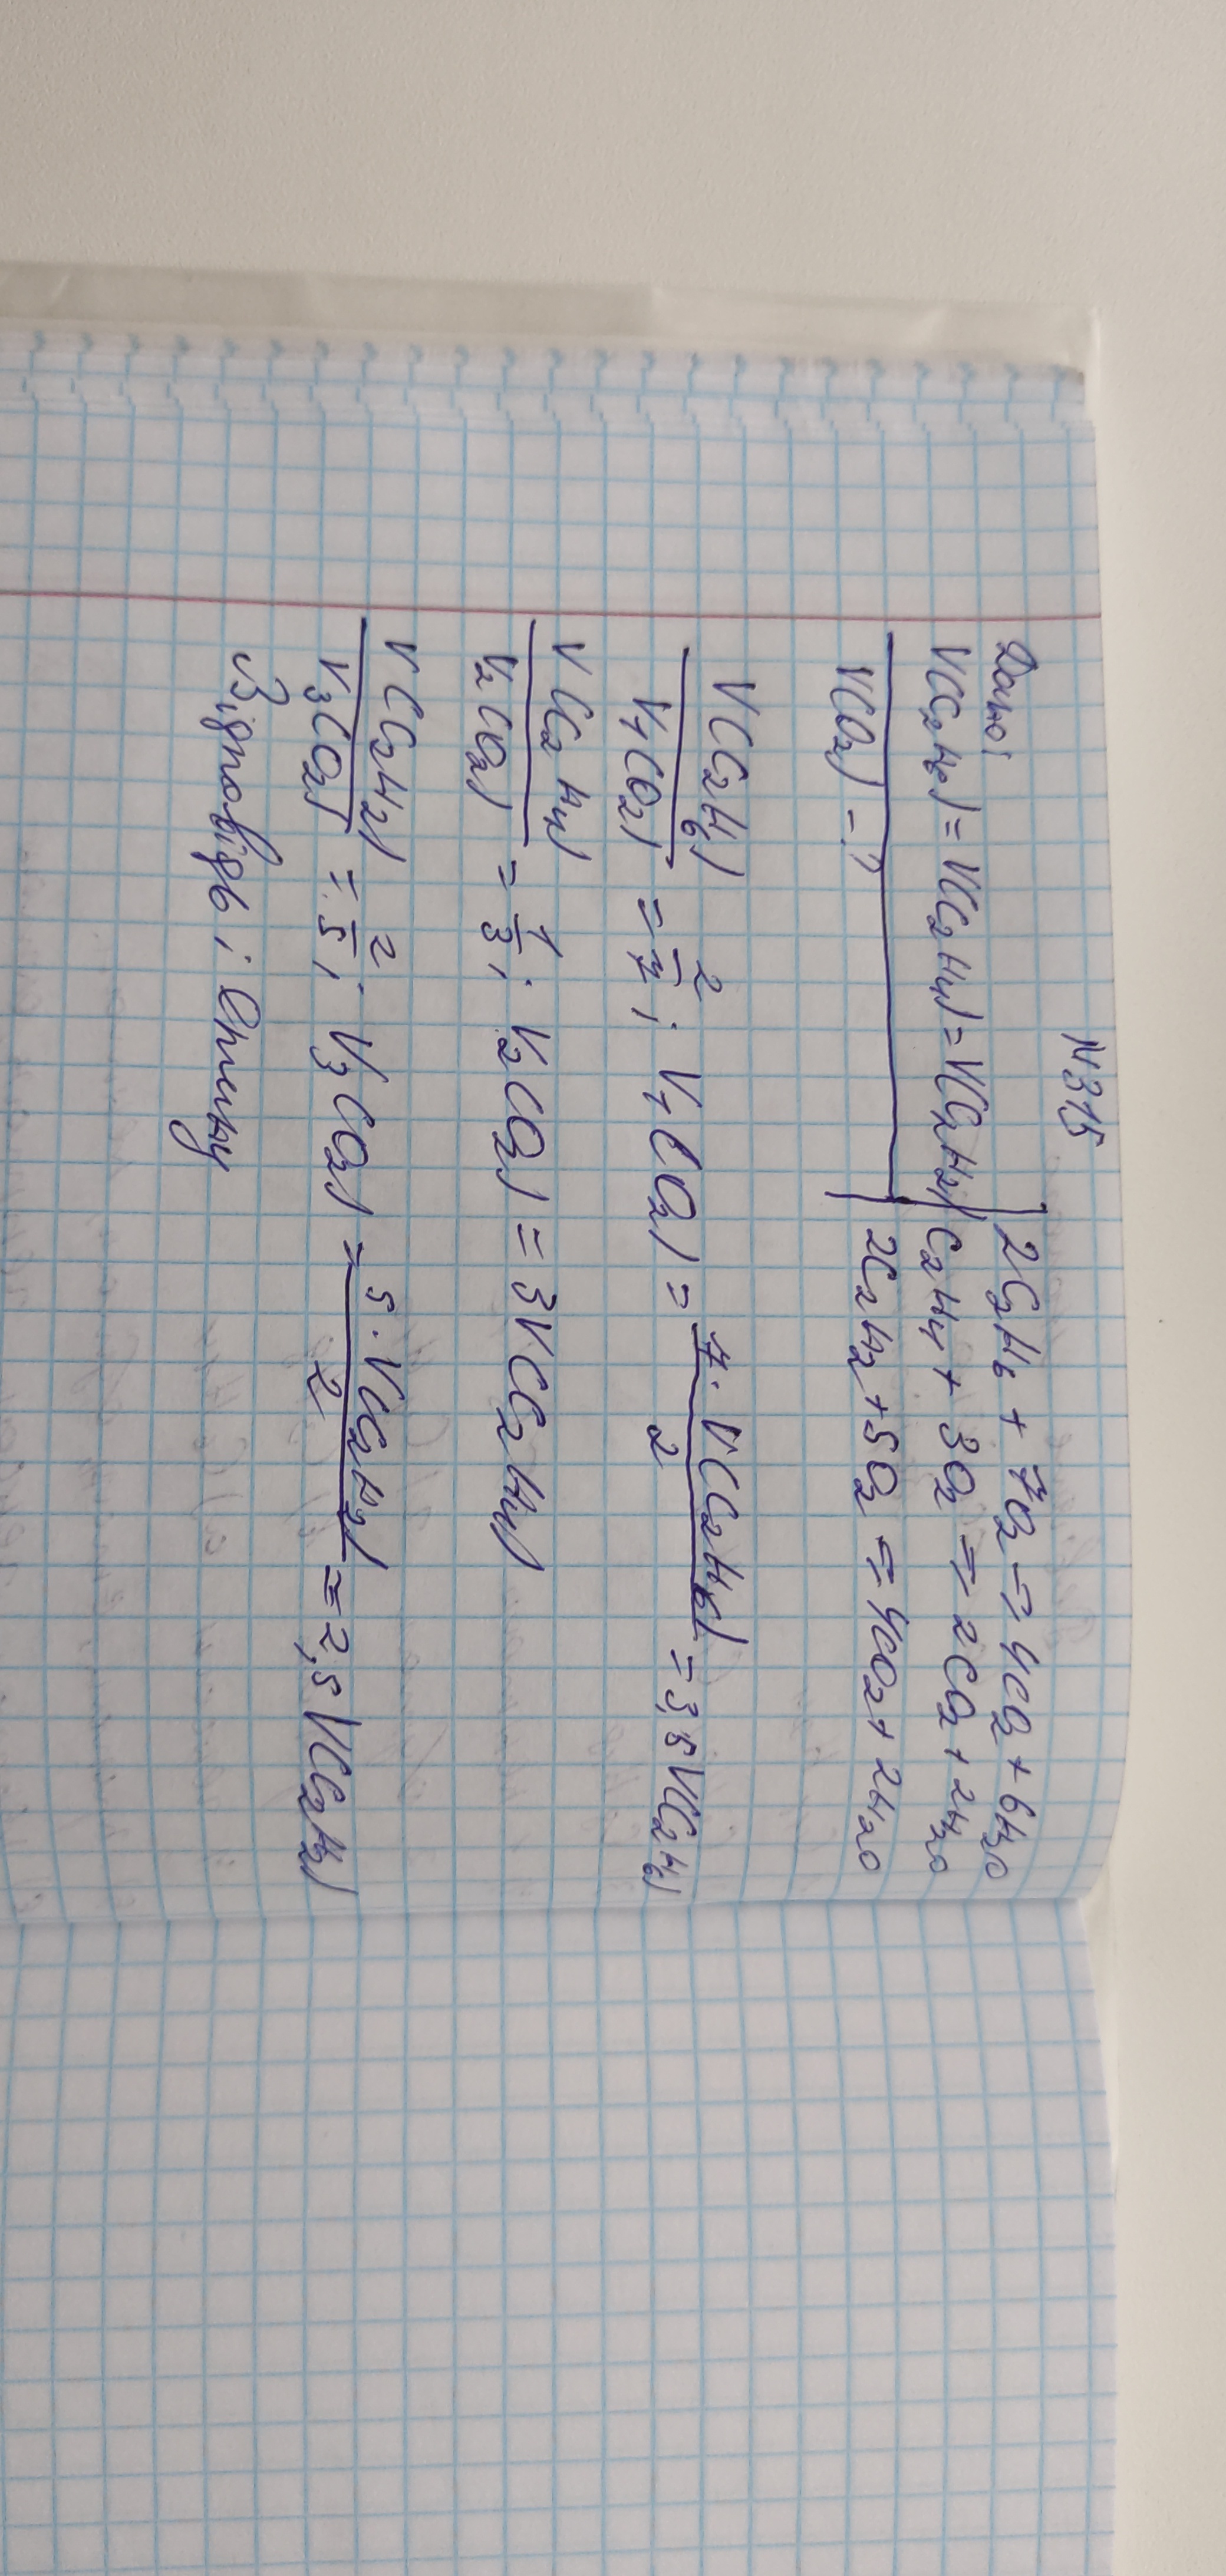 N315
Дано:
V(C₂H₆) = V(C₂H₄) = V(C₂H₂)
V(O₂) - ?
2C₂H₆ + 7O₂ = 4CO₂ + 6H₂O
C₂H₄ + 3O₂ = 2CO₂ + 2H₂O
2C₂H₂ + 5O₂ = 4CO₂ + 2H₂O
V(C₂H₆) / V₁(O₂) = 2/7; V₁(O₂) = 7·V(C₂H₆) / 2 = 3,5V(C₂H₆)
V(C₂H₄) / V₂(O₂) = 1/3; V₂(O₂) = 3V(C₂H₄)
V(C₂H₂) / V₃(O₂) = 2/5; V₃(O₂) = 5·V(C₂H₂) / 2 = 2,5V(C₂H₂)
Відповідь: Етину